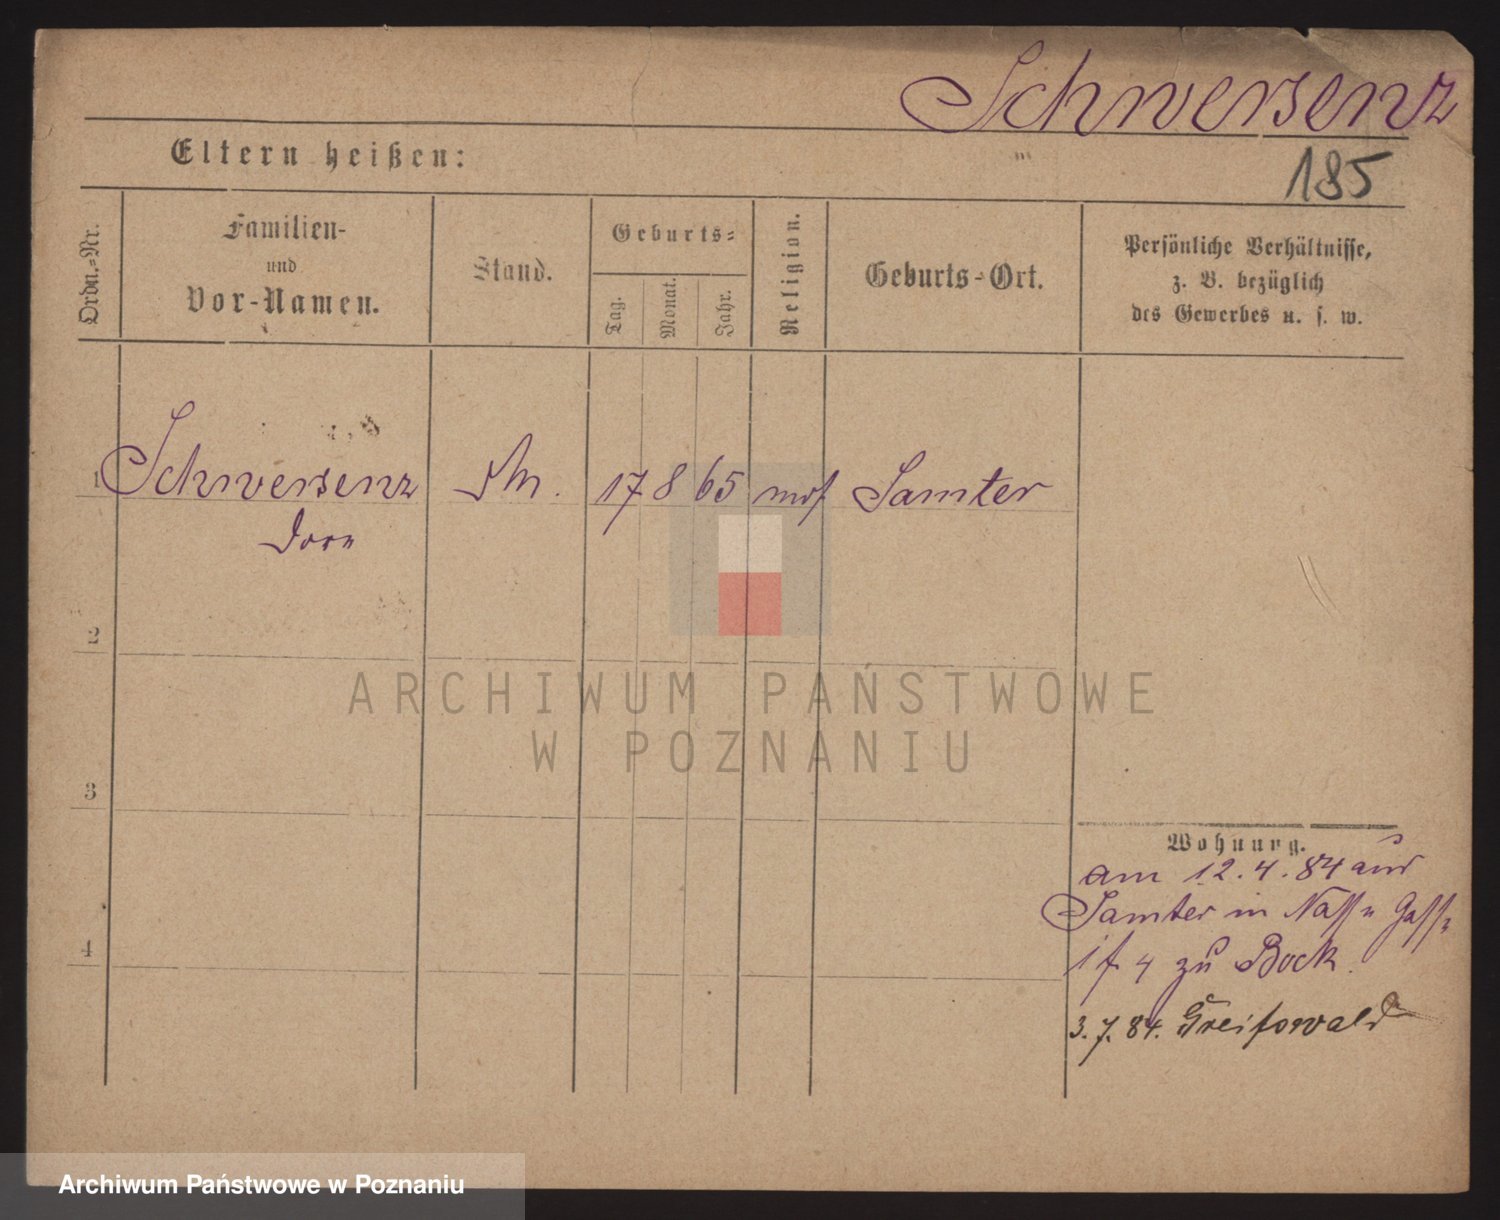 Schwersenz
185
Eltern heißen:
Ordn.-Nr.
Familien-
und
Vor-Namen.
Stand.
Geburts-
Tag.
Monat.
Jahr.
Religion.
Geburts-Ort.
Persönliche Verhältnisse,
z. B. bezüglich
des Gewerbes u. s. w.
1 Schwersenz 17 8 65 mos Samter
2
3
4
Wohnung.
am 12.4.84 aus
Samter in Nasse Gasse
4 zu Bock.
3.7.84. Greifswald
ARCHIWUM PAŃSTWOWE
W POZNANIU
Archiwum Państwowe w Poznaniu